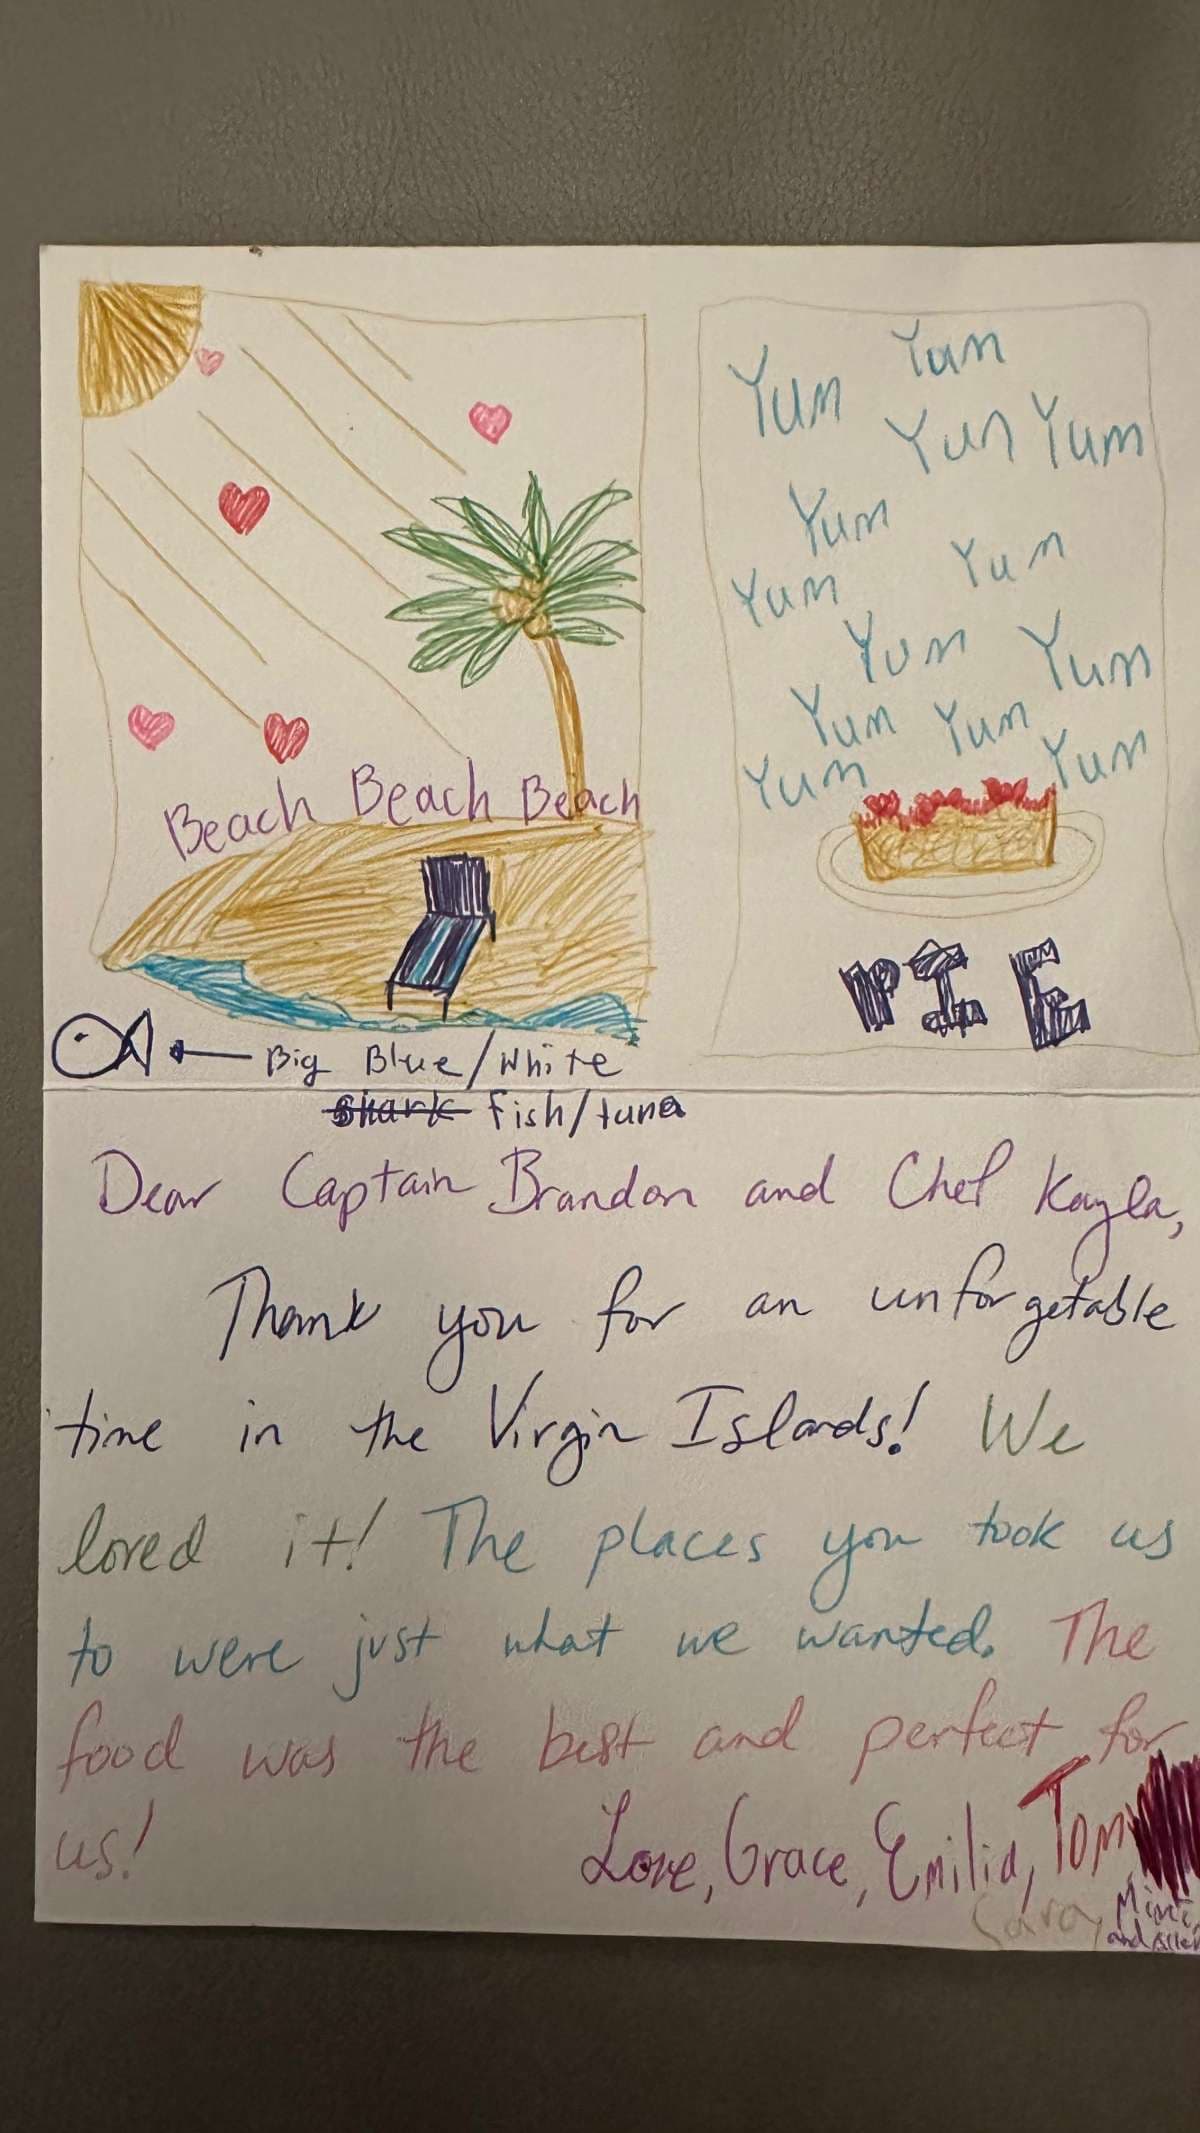 Beach Beach Beach
Big Blue/White
shark fish/tuna
Yum Yum
Yum Yum
Yum
Yum Yum
Yum Yum
Yum Yum
Yum Yum
PIE
Dear Captain Brandon and Chef Kayla,
Thank you for an unforgetable
time in the Virgin Islands! We
loved it! The places you took us
to were just what we wanted. The
food was the best and perfect for
us!
Love, Grace, Emilia, Tom
Sara,
and